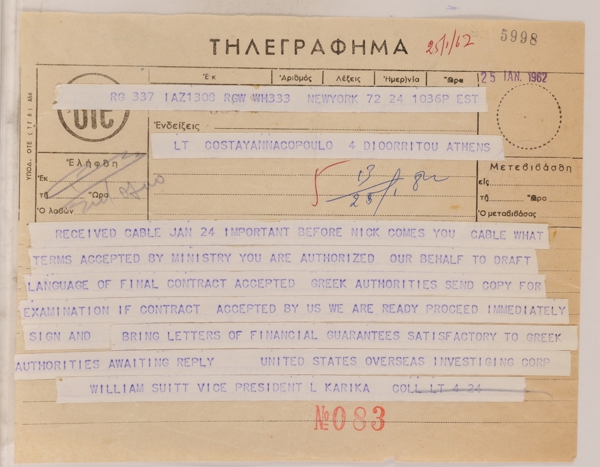 5998
ΤΗΛΕΓΡΑΦΗΜΑ
25/1/62
Ἐκ Ἀριθμός Λέξεις Ἡμερ)νία Ὥρα
25 ΙΑΝ. 1962
RG 337 IAZ1308 RGW WH333 NEWYORK 72 24 1036P EST
ΟΤΕ
Ἐνδείξεις
LT COSTAYANNACOPOULO 4 DIOORRITOU ATHENS
Ἐλήφθη
Μετεβιβάσθη
Ἐκ
εἰς
τῇ Ὥρα
τῇ Ὥρα
Ὁ λαβών
Ὁ μεταβιβάσας
RECEIVED CABLE JAN 24 IMPORTANT BEFORE NICK COMES YOU CABLE WHAT
TERMS ACCEPTED BY MINISTRY YOU ARE AUTHORIZED OUR BEHALF TO DRAFT
LANGUAGE OF FINAL CONTRACT ACCEPTED GREEK AUTHORITIES SEND COPY FOR
EXAMINATION IF CONTRACT ACCEPTED BY US WE ARE READY PROCEED IMMEDIATELY
SIGN AND BRING LETTERS OF FINANCIAL GUARANTEES SATISFACTORY TO GREEK
AUTHORITIES AWAITING REPLY UNITED STATES OVERSEAS INVESTIGING CORP
WILLIAM SUITT VICE PRESIDENT L KARIKA COLL LT 4 24
№083